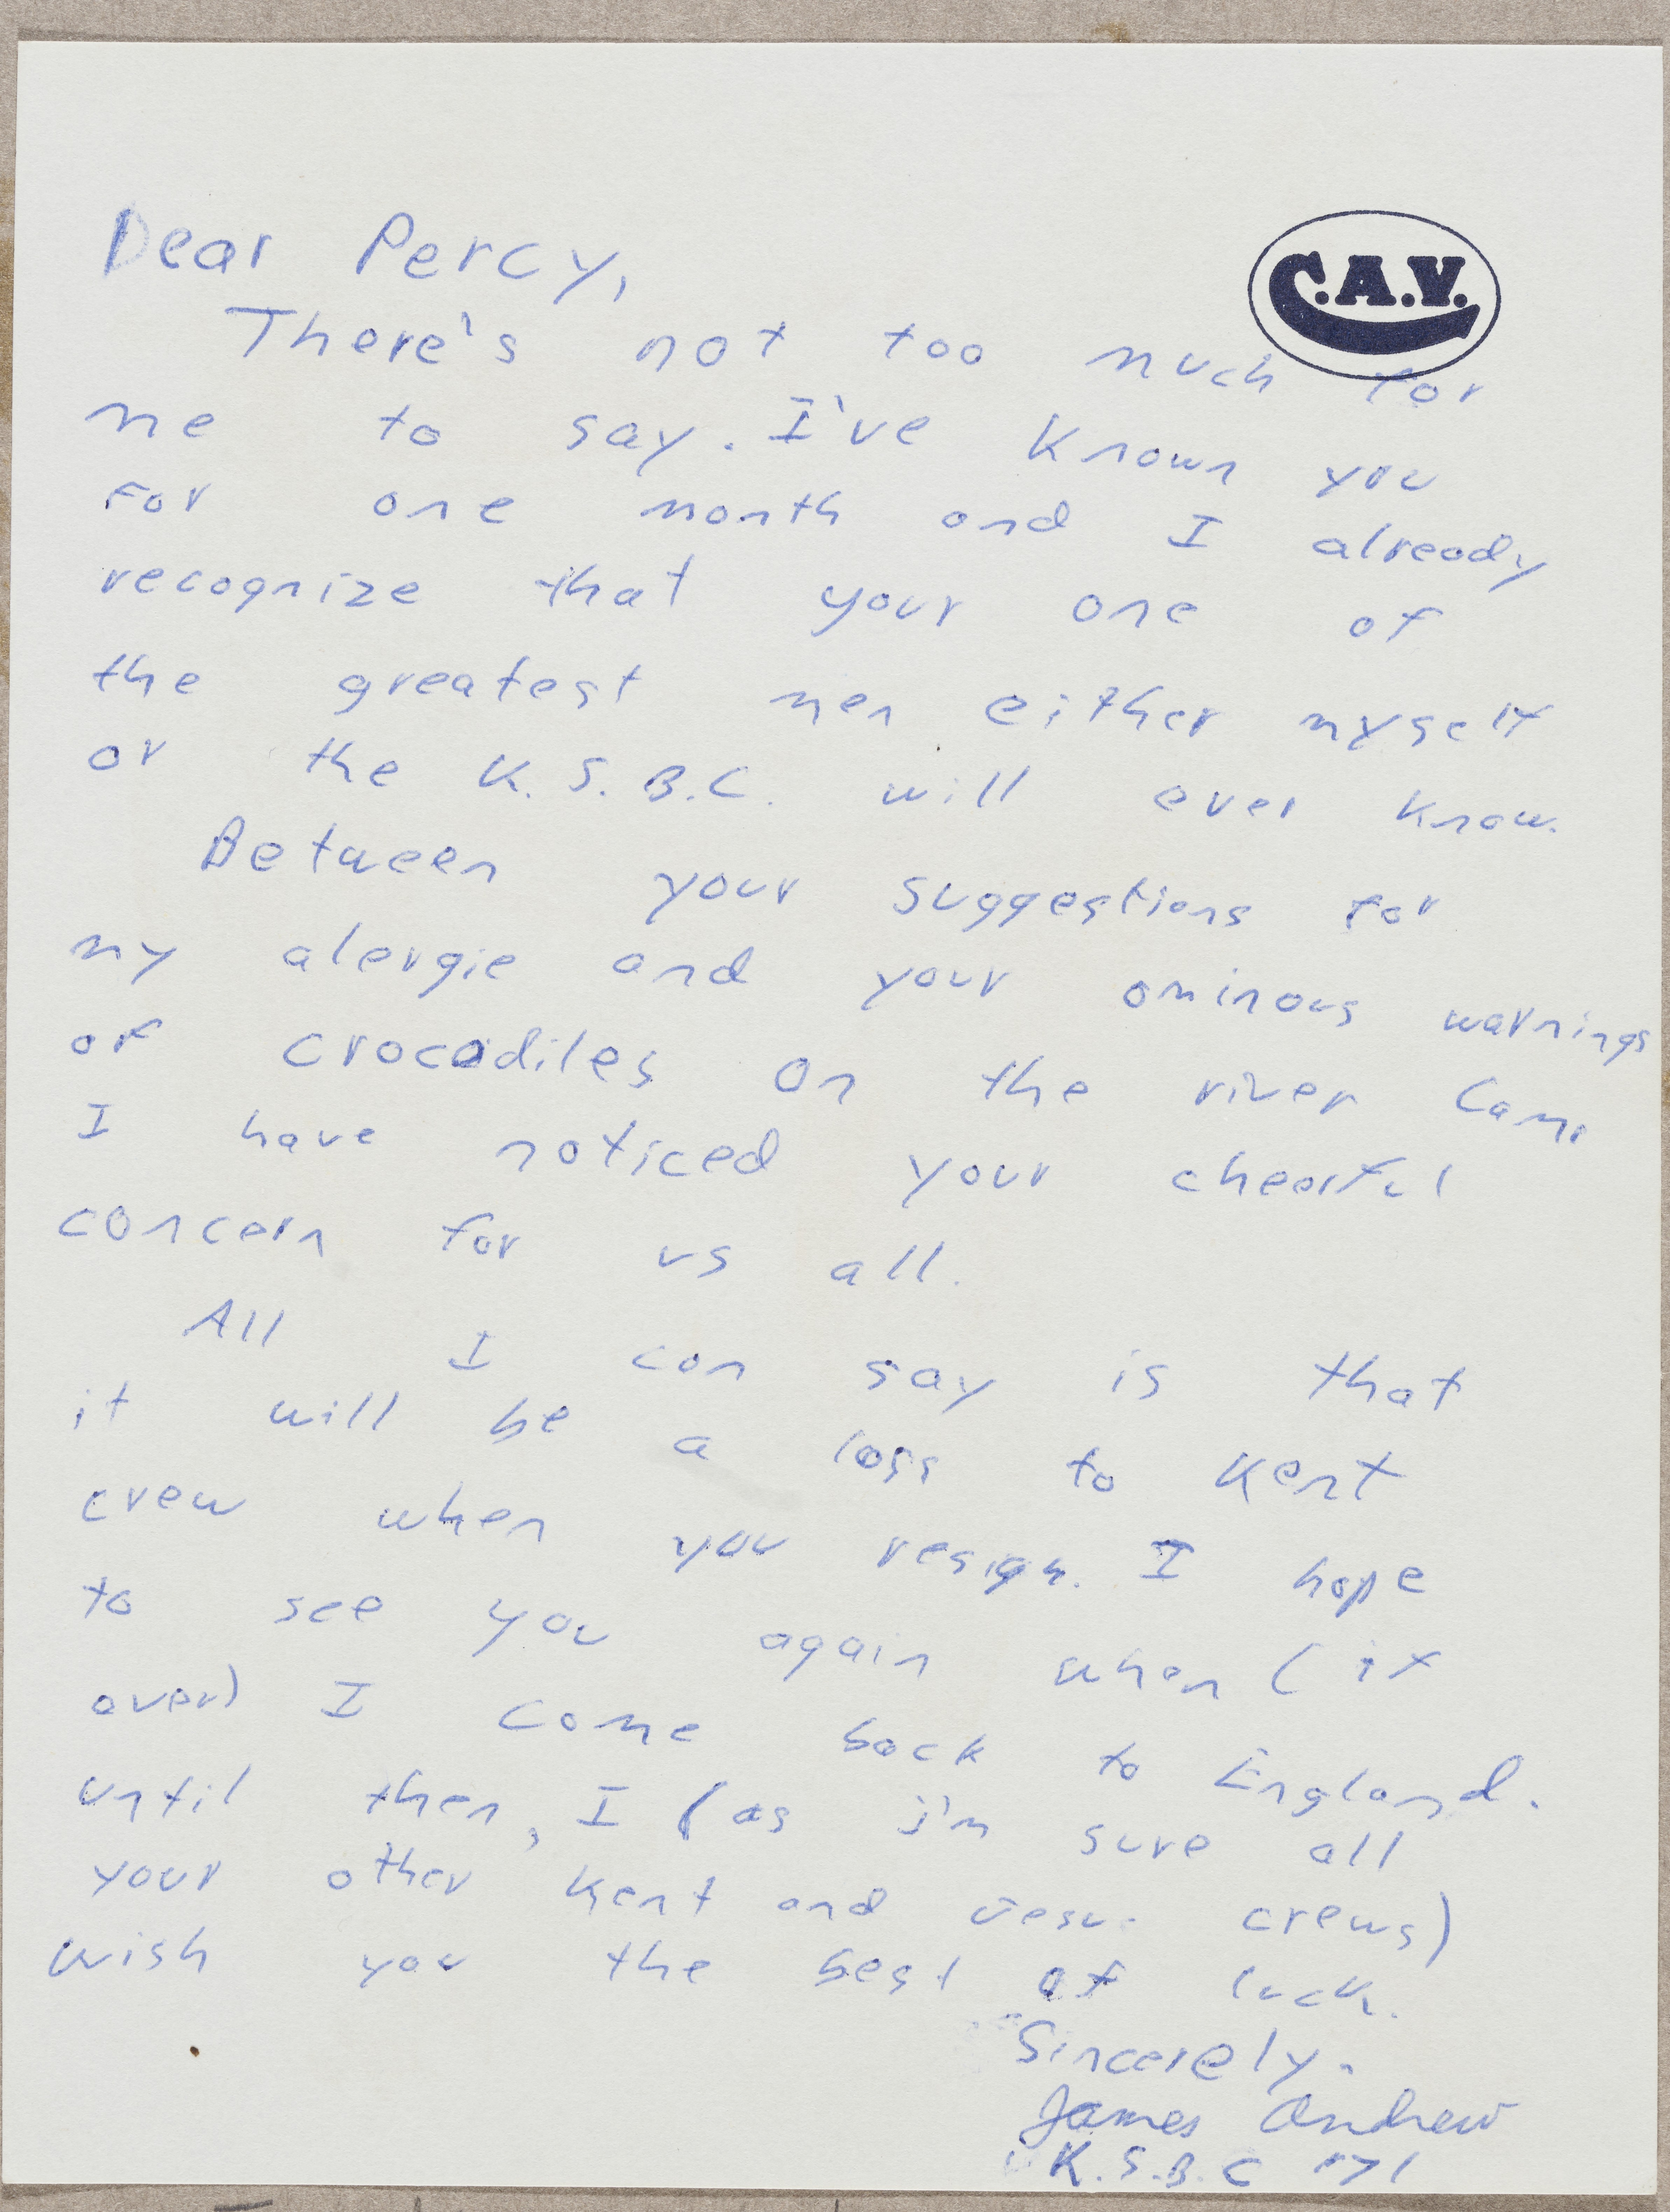 C.A.V.
Dear Percy,
There's not too much for
me to say. I've known you
for one month and I already
recognize that your one of
the greatest men either myself
or the K.S.B.C. will ever know.
Between your suggestions for
my alergie and your ominous warnings
of crocodiles on the river Cam,
I have noticed your cheerful
concern for us all.
All I can say is that
it will be a loss to Kent
crew when you resign. I hope
to see you again when (if
ever) I come back to England.
until then, I (as i'm sure all
your other Kent and Jesus crews)
wish you the best of luck.
Sincerely.
James Andrew
K.S.B.C '71